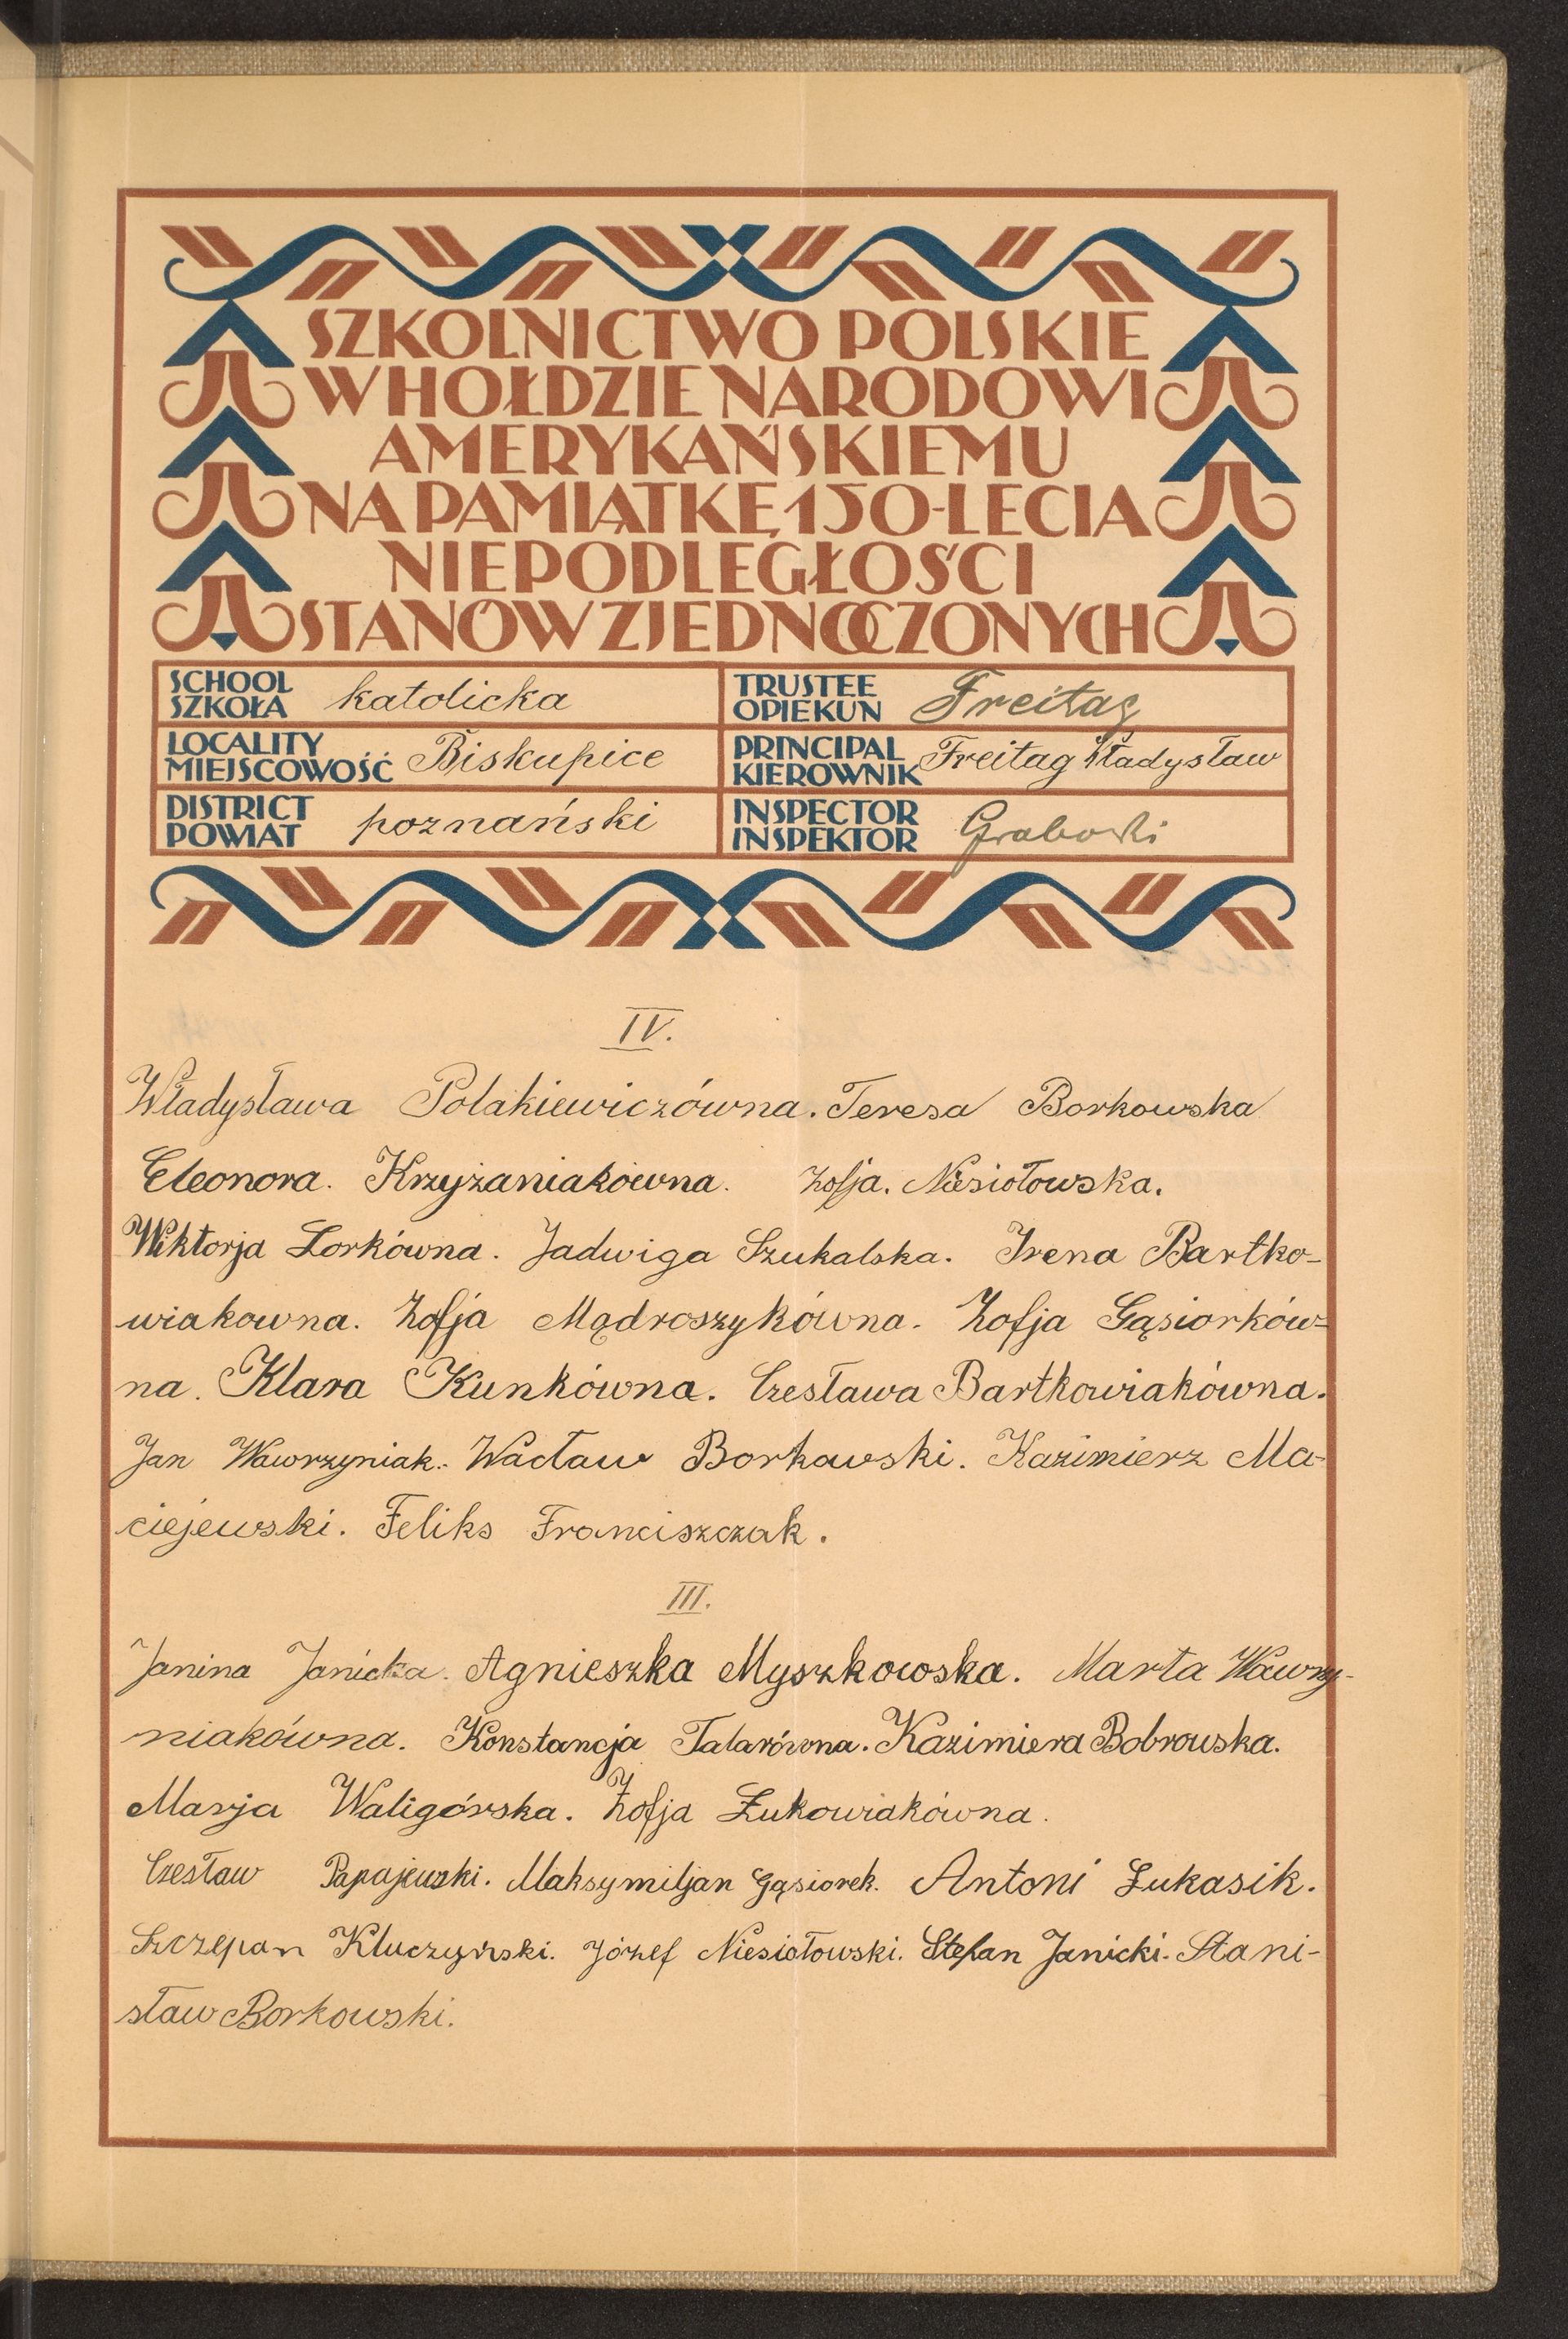 SZKOLNICTWO POLSKIE
W HOŁDZIE NARODOWI
AMERYKAŃSKIEMU
NA PAMIĄTKĘ 150-LECIA
NIEPODLEGŁOŚCI
STANÓW ZJEDNOCZONYCH
SCHOOL
SZKOŁA katolicka
TRUSTEE
OPIEKUN Freitag
LOCALITY
MIEJSCOWOŚĆ Biskupice
PRINCIPAL
KIEROWNIK Freitag Władysław
DISTRICT
POWIAT poznański
INSPECTOR
INSPEKTOR Grabowski
IV.
Władysława Polakiewiczówna. Teresa Borkowska
Eleonora. Krzyżaniakówna. Zofja. Niesiołowska.
Wiktorja Lorkówna. Jadwiga Szukalska. Irena Bartko-
wiakowna. Zofja Mądroszykówna. Zofja Gąsiorków-
na. Klara Kunkówna. Czesława Bartkowiakówna.
Jan Wawrzyniak. Wacław Borkowski. Kazimierz Ma-
ciejewski. Feliks Franciszczak.
III.
Janina Janicka. Agnieszka Myszkowska. Marta Wawrzy-
niakówna. Konstancja Talarówna. Kazimiera Bobrowska.
Marja Waligórska. Zofja Łukowiakówna.
Czesław Papajewski. Maksymiljan Gąsiorek. Antoni Łukasik.
Szczepan Kluczyński. Józef Niesiołowski. Stefan Janicki. Stani-
sław Borkowski.